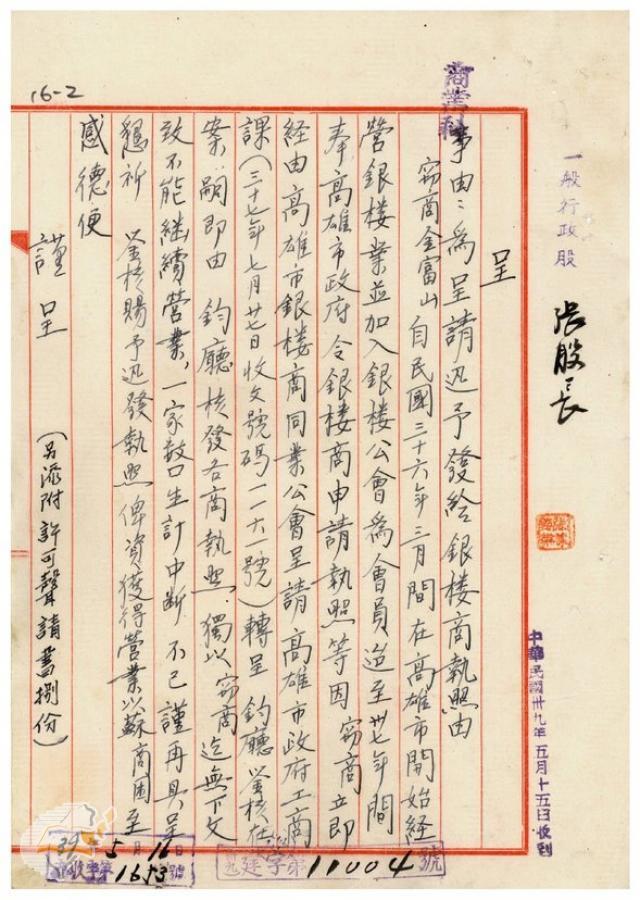 商業科
一般行政股
張股長
中華民國卅九年五月十五日收到
呈
事由：為呈請迅予發給銀楼商執照由
窃商金富山自民國三十六年三月間在高雄市開始經
營銀楼業並加入銀楼公會為會員迨至卅七年間
奉高雄市政府令銀楼商申請執照等因 窃商立即
經由高雄市銀楼商同業公會呈請高雄市政府工商
課（三十七年七月廿七日收文號碼一一六一號）轉呈 鈞廳鉴核在
案．嗣即由 鈞廳核發各商執照．獨以窃商迄無下文
致不能继續營業，一家数口生計中断 不已謹再具呈
懇祈 鉴核賜予迅發執照俾資獲得營業以蘇商困至
感德便
謹呈 （另添附許可聲請書捌份）
16-2
39 5月16日
1653號
字第11004號